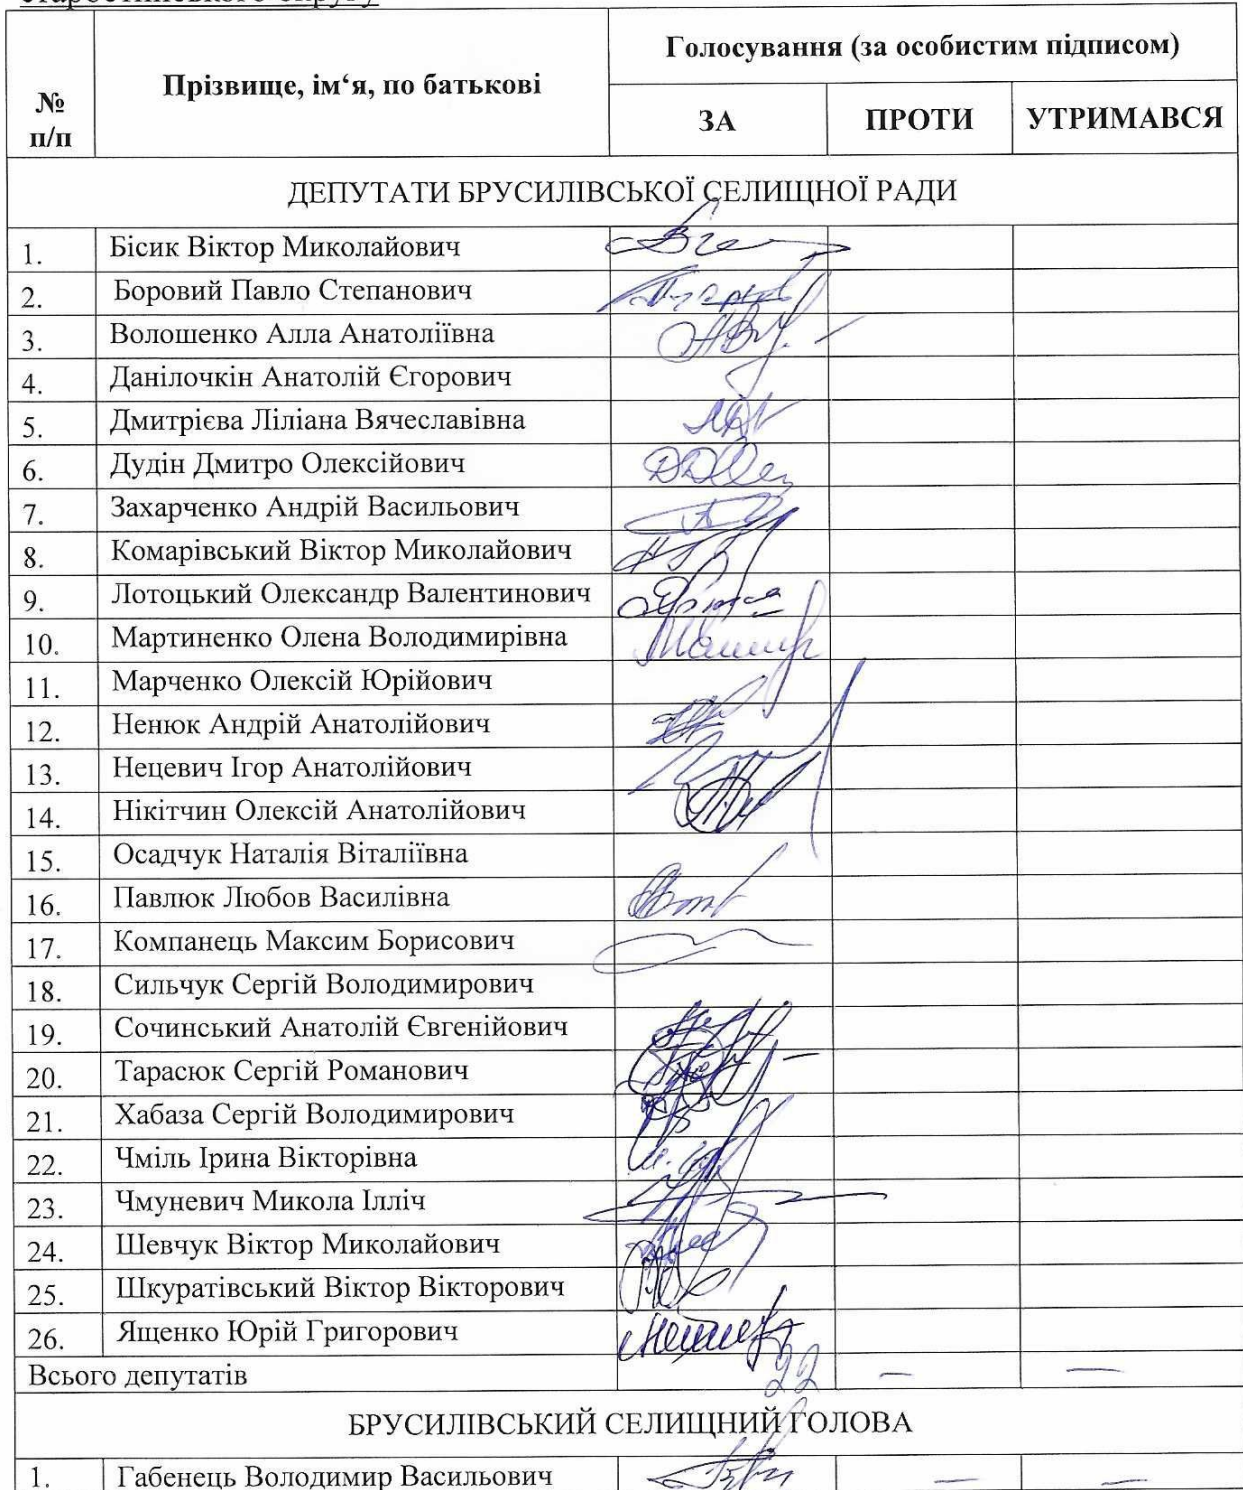 старостинського округу
№ п/п
Прізвище, ім‘я, по батькові
Голосування (за особистим підписом)
ЗА
ПРОТИ
УТРИМАВСЯ
ДЕПУТАТИ БРУСИЛІВСЬКОЇ СЕЛИЩНОЇ РАДИ
1. Бісик Віктор Миколайович
2. Боровий Павло Степанович
3. Волошенко Алла Анатоліївна
4. Данілочкін Анатолій Єгорович
5. Дмитрієва Ліліана Вячеславівна
6. Дудін Дмитро Олексійович
7. Захарченко Андрій Васильович
8. Комарівський Віктор Миколайович
9. Лотоцький Олександр Валентинович
10. Мартиненко Олена Володимирівна
11. Марченко Олексій Юрійович
12. Ненюк Андрій Анатолійович
13. Нецевич Ігор Анатолійович
14. Нікітчин Олексій Анатолійович
15. Осадчук Наталія Віталіївна
16. Павлюк Любов Василівна
17. Компанець Максим Борисович
18. Сильчук Сергій Володимирович
19. Сочинський Анатолій Євгенійович
20. Тарасюк Сергій Романович
21. Хабаза Сергій Володимирович
22. Чміль Ірина Вікторівна
23. Чмуневич Микола Ілліч
24. Шевчук Віктор Миколайович
25. Шкуратівський Віктор Вікторович
26. Ященко Юрій Григорович
Всього депутатів 22 — —
БРУСИЛІВСЬКИЙ СЕЛИЩНИЙ ГОЛОВА
1. Габенець Володимир Васильович — —